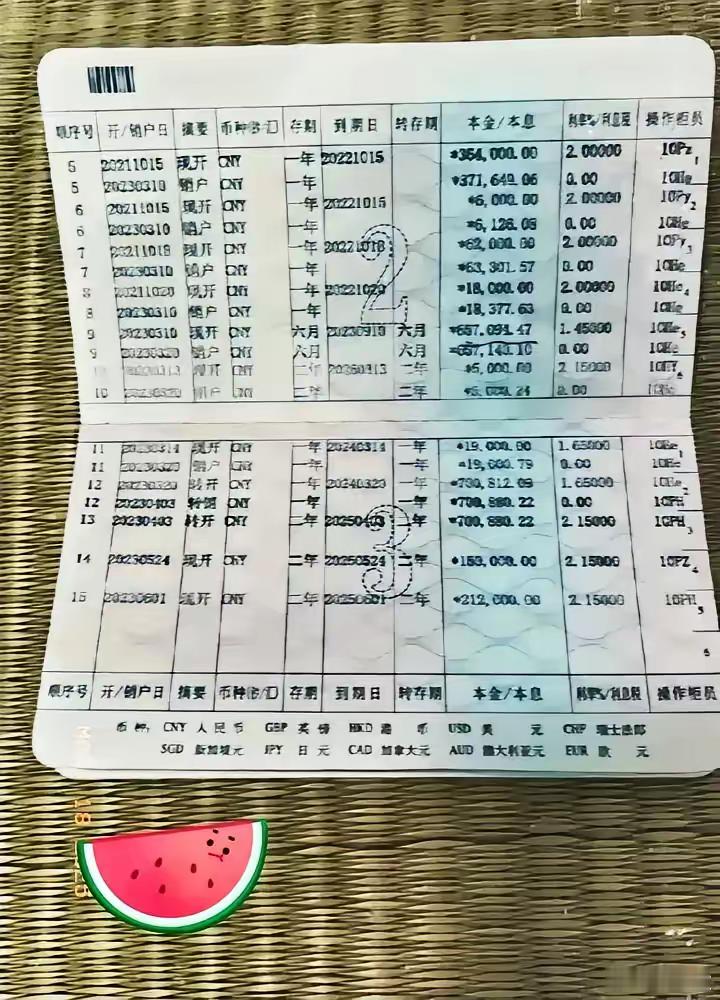 顺序号 开/销户日 摘要 币种(钞/汇) 存期 到期日 转存期 本金/本息 利率%/利息税 操作柜员
5 20211015 现开 CNY 一年 20221015 *354,000.00 2.00000 1
5 20230310 销户 CNY 一年 *371,649.06 0.00
6 20211015 现开 CNY 一年 20221015 *6,000.00 2.00000 2
6 20230310 销户 CNY 一年 *6,126.08 0.00
7 20211018 现开 CNY 一年 20221018 *62,000.00 2.00000 3
7 20230310 销户 CNY 一年 *63,301.57 0.00
8 20211020 现开 CNY 一年 20221020 *18,000.00 2.00000 4
8 20230310 销户 CNY 一年 *18,377.63 0.00
9 20230310 现开 CNY 六月 20230910 六月 *657,094.47 1.45000 5
9 20230320 销户 CNY 六月 六月 *657,143.10 0.00
现开 CNY 二年 二年 *5,000.00 2.15000
10 20230320 销户 CNY 二年 二年 0.00
2
11 20230314 现开 CNY 一年 20240314 一年 *19,000.00 1.65000 1
11 20230320 销户 CNY 一年 一年 0.00
12 20230320 转开 CNY 一年 20240320 一年 1.65000 2
12 20230403 转销 CNY 一年 一年 0.00 1GPH
13 20230403 转开 CNY 二年 20250403 二年 2.15000 1GPH 3
14 20230524 现开 CNY 二年 20250524 二年 *153,000.00 2.15000 1GPZ 4
15 20230601 现开 CNY 二年 20250601 二年 *212,000.00 2.15000 1GPH 5
6
3
顺序号 开/销户日 摘要 币种(钞/汇) 存期 到期日 转存期 本金/本息 利率%/利息税 操作柜员
币种: CNY 人民币 GBP 英镑 HKD 港币 USD 美元 CHF 瑞士法郎
SGD 新加坡元 JPY 日元 CAD 加拿大元 AUD 澳大利亚元 EUR 欧元